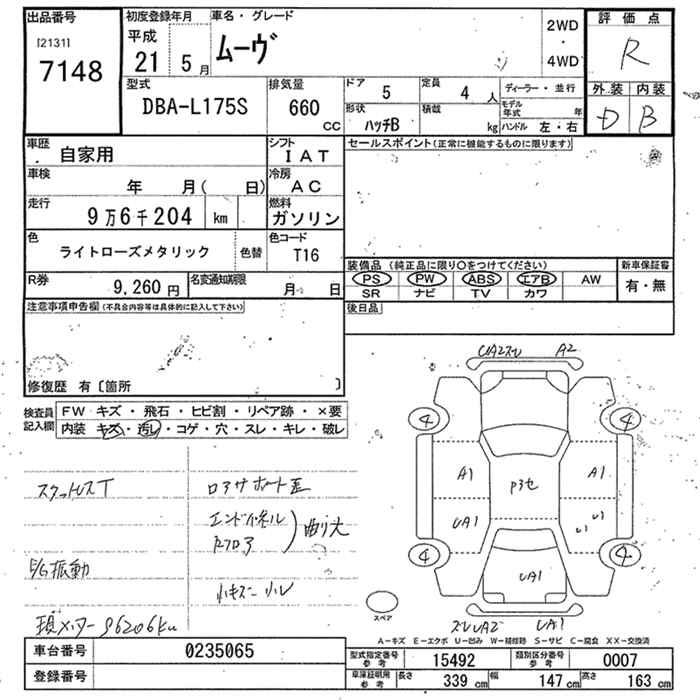 出品番号
[2131]
7148
初度登録年月
平成
21 5月
車名・グレード
ムーヴ
2WD
・
4WD
評価点
R
外装 内装
D B
型式
DBA-L175S
排気量
660
CC
ドア 5
定員 4人
ディーラー・並行
形状 ハッチB
積載 kg
モデル年式 年
ハンドル 左・右
車歴
自家用
シフト
IAT
車検
年 月( 日)
冷房
AC
走行
9万6千204 km
燃料
ガソリン
色
ライトローズメタリック
色替
色コード
T16
R券
9,260円
名変通知期限
月 日
セールスポイント(正常に機能するものに限ります)
装備品(純正品に限り○をつけてください)
PS PW ABS エアB AW
SR ナビ TV カワ
新車保証書
有・無
後日品
注意事項申告欄(不具合内容等は具体的に記入して下さい)
修復歴 有〔箇所 〕
検査員記入欄
FW キズ・飛石・ヒビ割・リペア跡・×要
内装 キズ・汚レ・コゲ・穴・スレ・キレ・破レ
スタットレスT
ロアサポート歪
エンドパネル
曲り大
E/G振動
小キズ 小凹
現メーター 96206km
UA2スレ A2
4 4
A1 A1
UA1 U1
4 4
UA1
スペア
スレUA2 UA1
A-キズ E-エクボ U-凹み W-補修跡 S-サビ C-腐食 XX-交換済
車台番号 0235065
登録番号
型式指定番号参考 15492
類別区分番号参考 0007
車庫証明用参考 長さ 339cm 幅 147cm 高さ 163cm